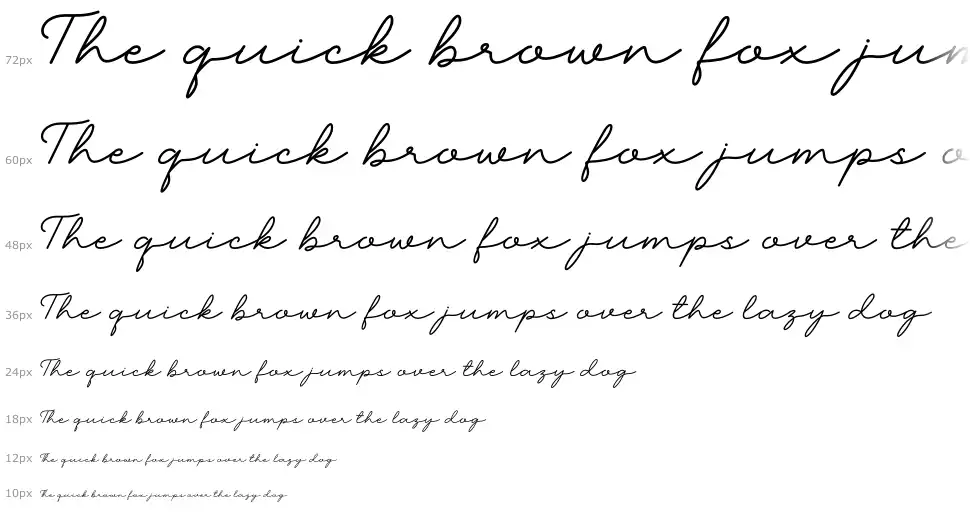 72px The quick brown fox jum
60px The quick brown fox jumps o
48px The quick brown fox jumps over the
36px The quick brown fox jumps over the lazy dog
24px The quick brown fox jumps over the lazy dog
18px The quick brown fox jumps over the lazy dog
12px The quick brown fox jumps over the lazy dog
10px The quick brown fox jumps over the lazy dog